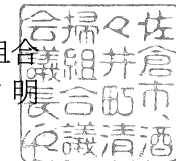 組合
明
佐倉市、酒
々井町清
掃組合議
会議長